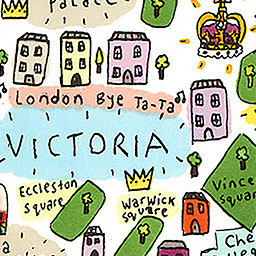 Palace
London Bye Ta-Ta
VICTORIA
Eccleston
Square
Warwick
Square
Vince
Square
Che